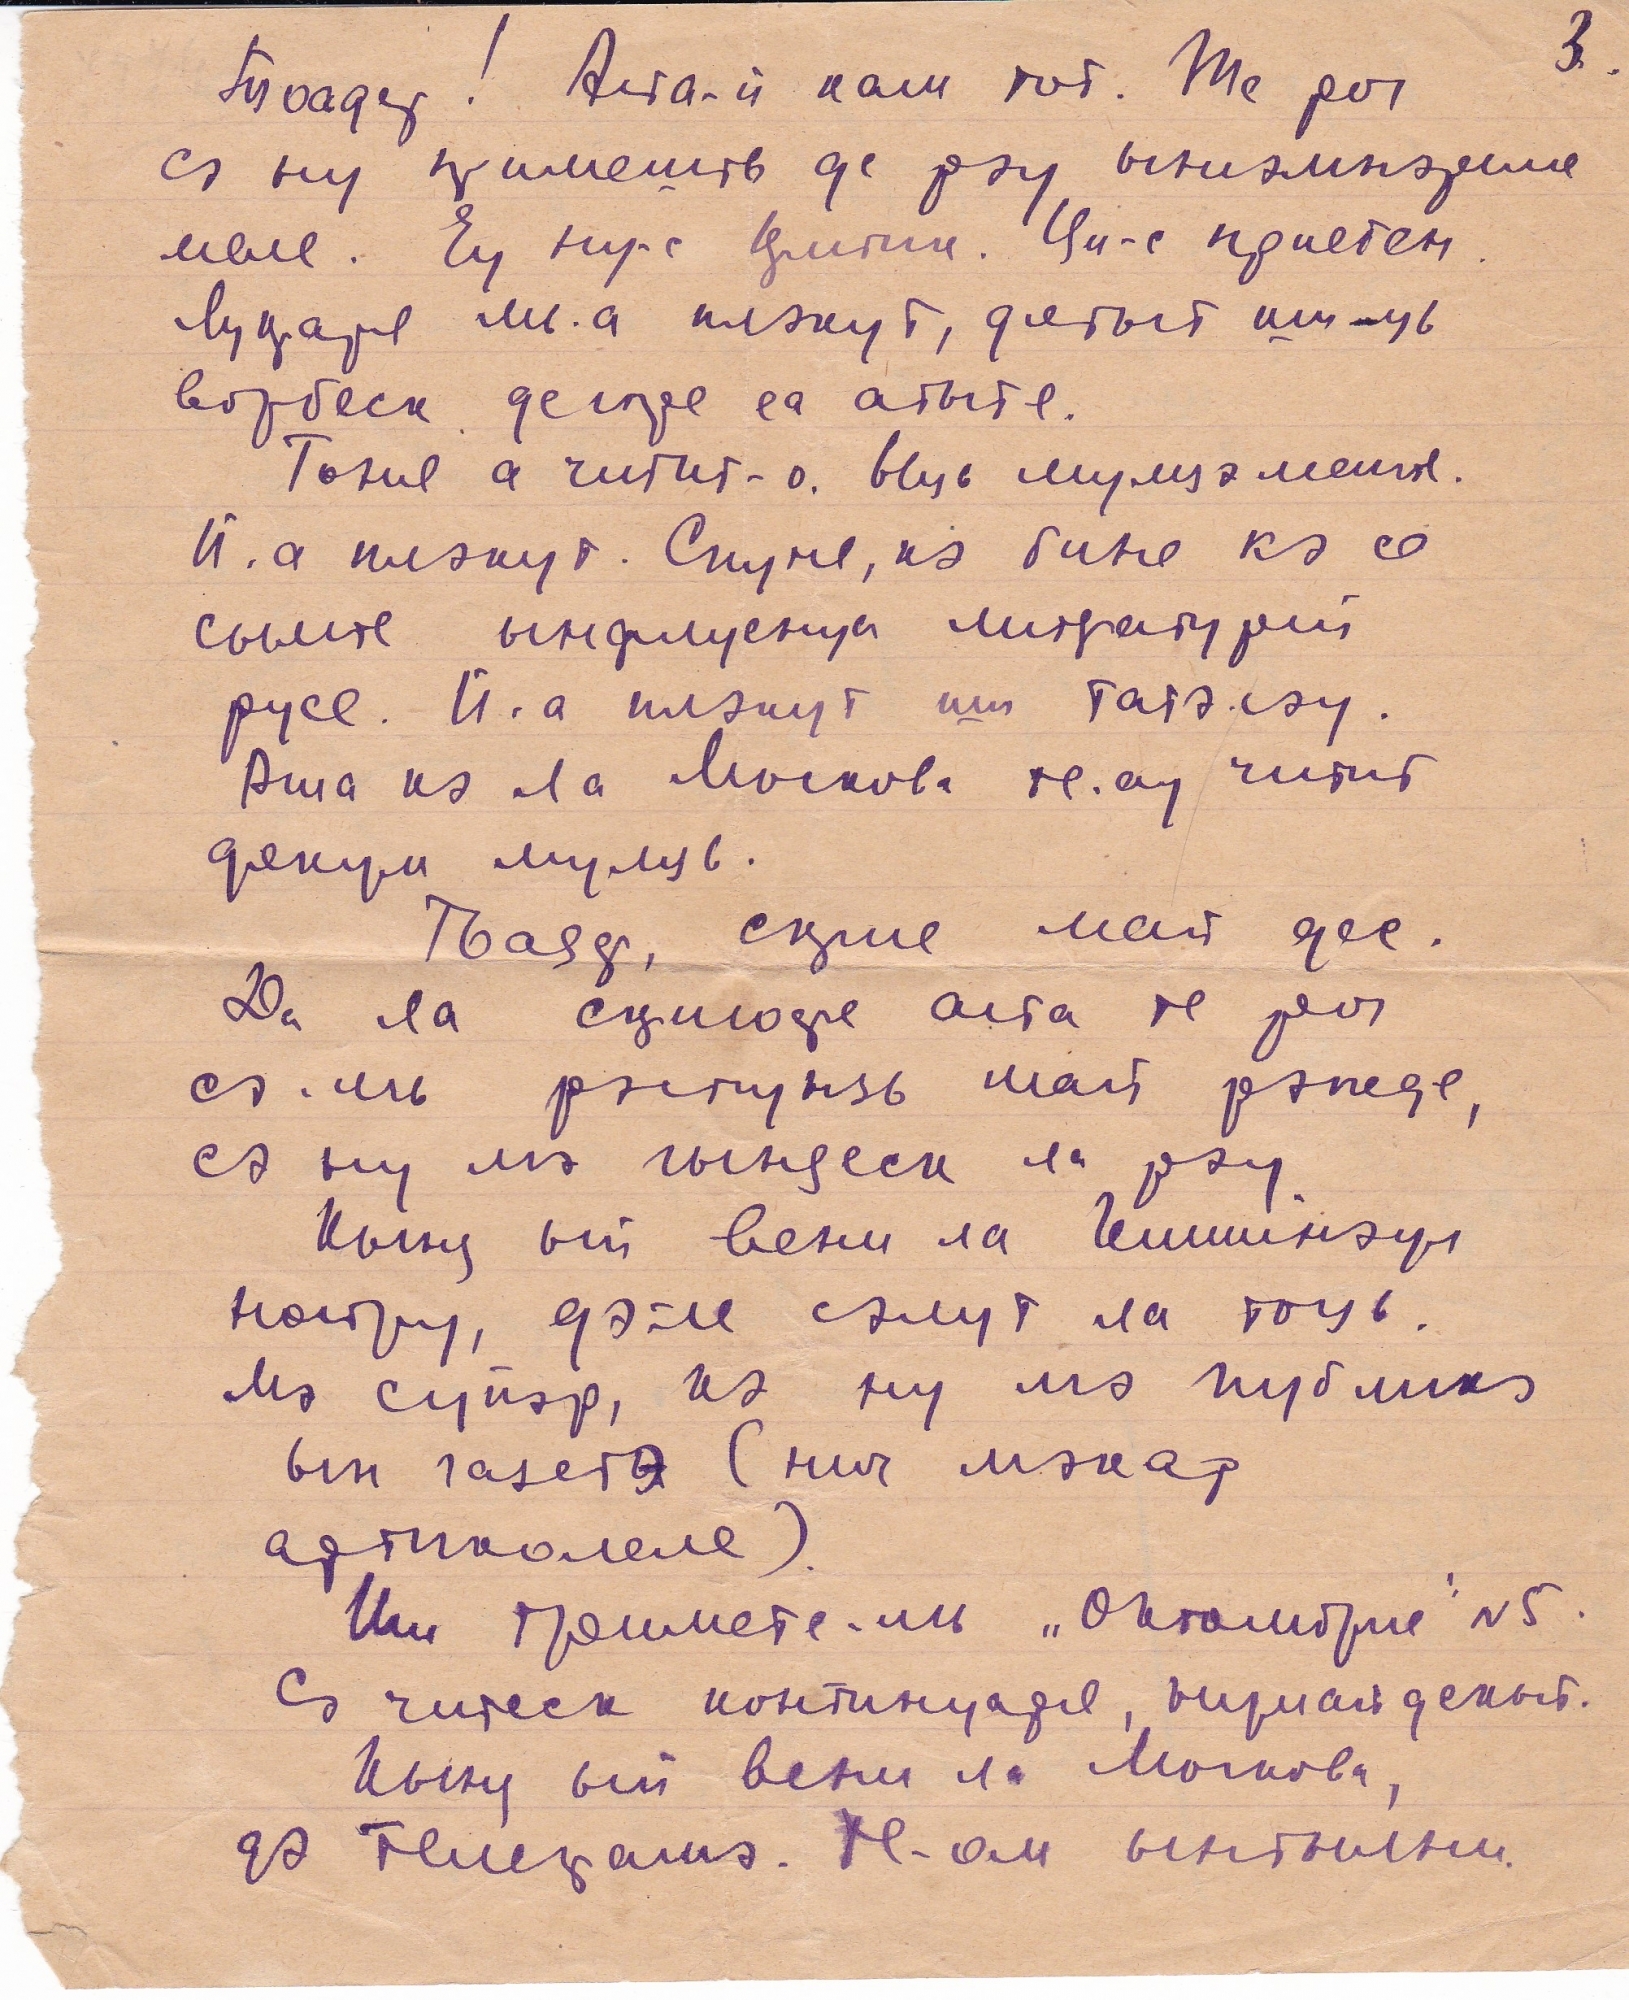 3.
Тоадер! Аста-й кам тот. Те рог
сэ ну примешть де рэу ынсэмнэриле
меле. Еу ну-с критик. Ци-с приетен.
Лукраря мь-а плэкут, дятыт шь-ць
ворбеск деспре еа атыте.
Таня а читит-о. Ыць мулцэмеште.
Й-а плэкут. Спуне, кэ бине кэ се
сымте ынфлуенца литературий
русе. Й-а плэкут ши татэ-сэу.
Аша кэ ла Москова те-ау читит
дякум мулць.
Тоадер, скрие май дес.
Да ла скрисоаре аста те рог
сэ-мь рэспунзь май рэпеде,
сэ ну мэ гындеск ла рэу
Кынд ый вени ла Кишинэул
ностру, дэ-ле сэлут ла тоць.
Мэ супэр, кэ ну мэ публикэ
ын газетэ (нич мэкар
артиколеле).
Ши тримете-мь „Октомбрие" N5.
Сэ читеск континуаря, нумай декыт.
Кынд ый вени ла Москова,
дэ телеграмэ. Те-ом ынтылни.